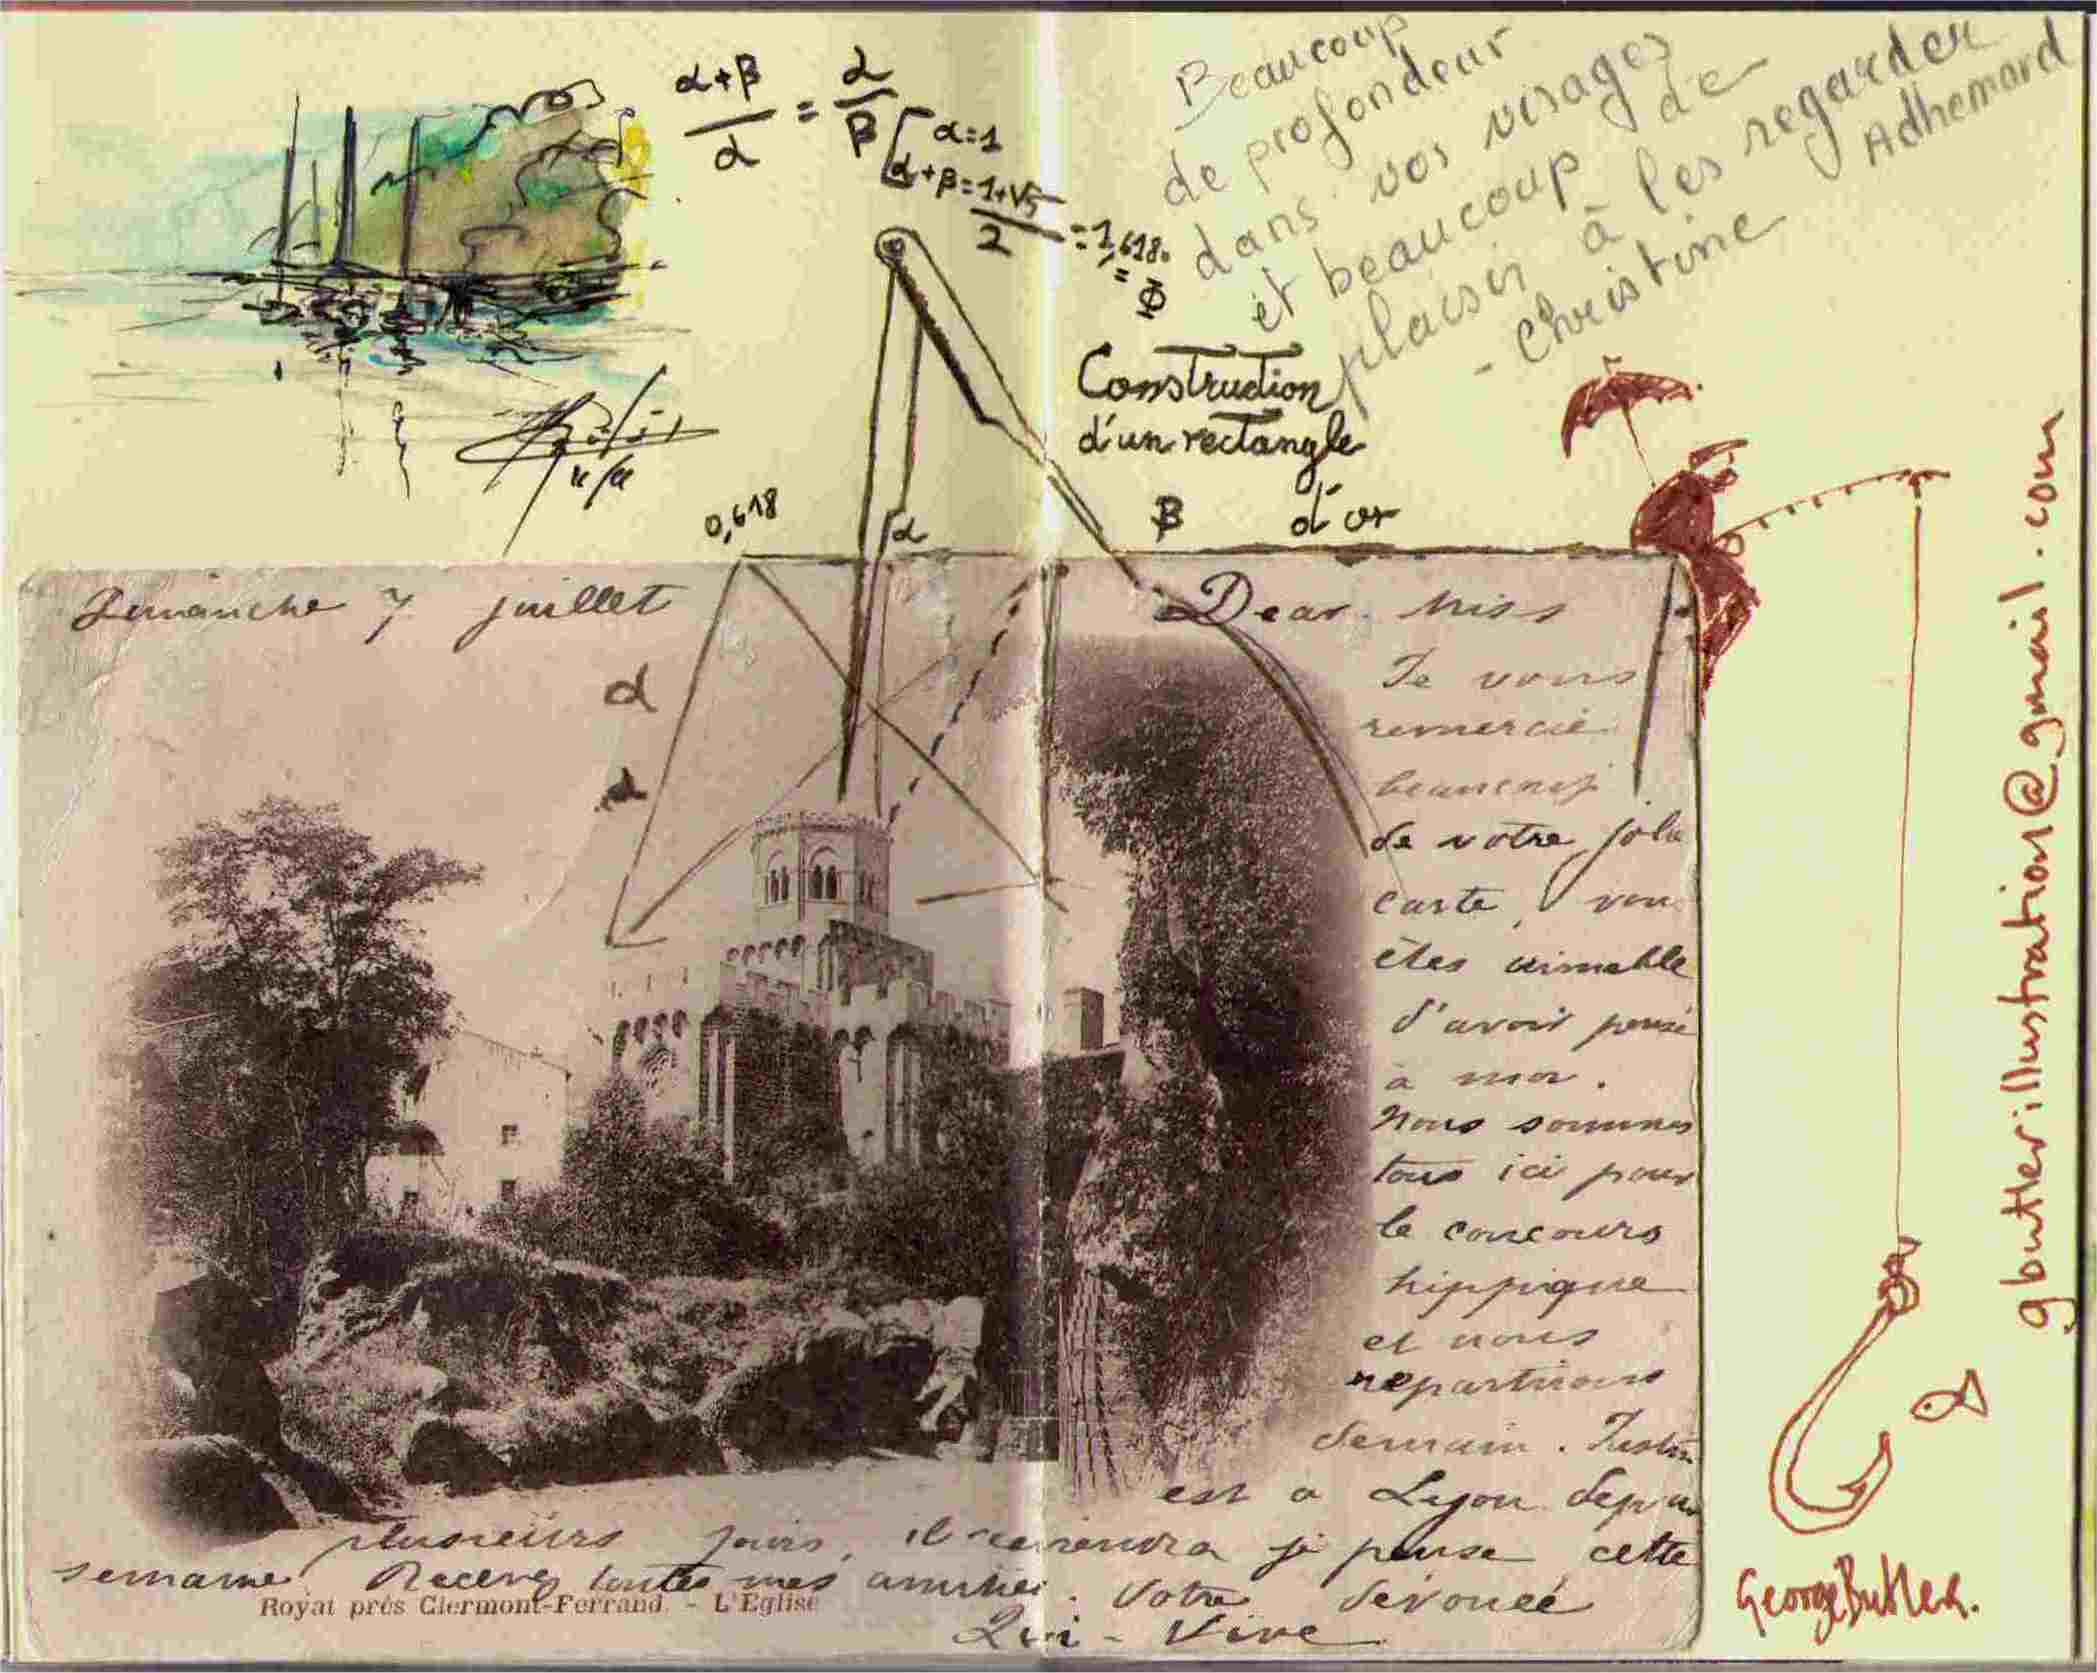 α+β
α
=
α
β
α=1
α+β=1+√5
2
=1,618.
=
Φ
Beaucoup
de profondeur
dans vos visages
et beaucoup de
plaisir à les regarder
- Christine Adhemard
Construction
d'un rectangle
d'or
0,618
α
β
α
α
Dimanche 7 juillet
Dear Miss
Je vous
remercie
beaucoup
de votre jolie
carte, vous
êtes aimable
d'avoir pensé
à moi.
Nous sommes
tous ici pour
le concours
hippique
et nous
repartirons
demain.
est à Lyon depuis
plusieurs jours, il reviendra je pense cette
semaine. Recevez toutes mes amitiés. Votre dévouée
Qui-Vive
Royat près Clermont-Ferrand. - L'Eglise
gbutlerillustration@gmail.com
George Butler.